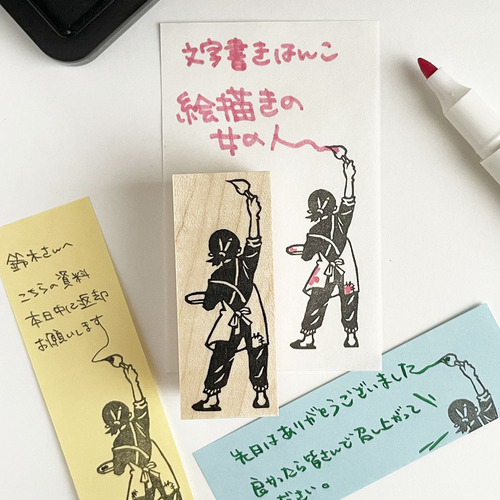 文字書きはんこ
絵描きの
女の人
鈴木さんへ
こちらの資料
本日中に返却
お願いします
先日はありがとうございました
良かったら皆さんで召し上がって
ださい。